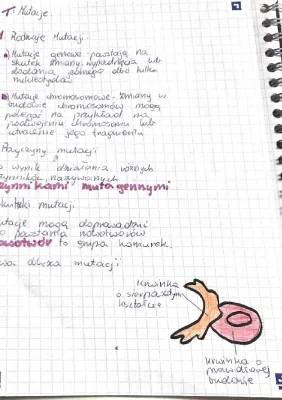 T: Mutacje.
1 Rodzaje Mutacji.
a) Mutacje genowe - powstają na
skutek zmiany, wypadnięcia lub
dodania jednego albo kilku
nukleotydów
b) Mutacje chromosomowe - zmiany w
budowie chromosomów mogą
polegać na przykład na
podwojeniu chromosomu lub
utracenie jego fragmentu
Przyczyny mutacji
o wynik działania różnych
czynników nazywanych
czynnikami mutagennymi
skutki mutacji
utacje mogą doprowadzić
o powstania nowotworów
owotwór to grupa komórek.
mutacji
krwinka
o sierpowatym
kształcie
krwinka o
prawidłowej
budowie